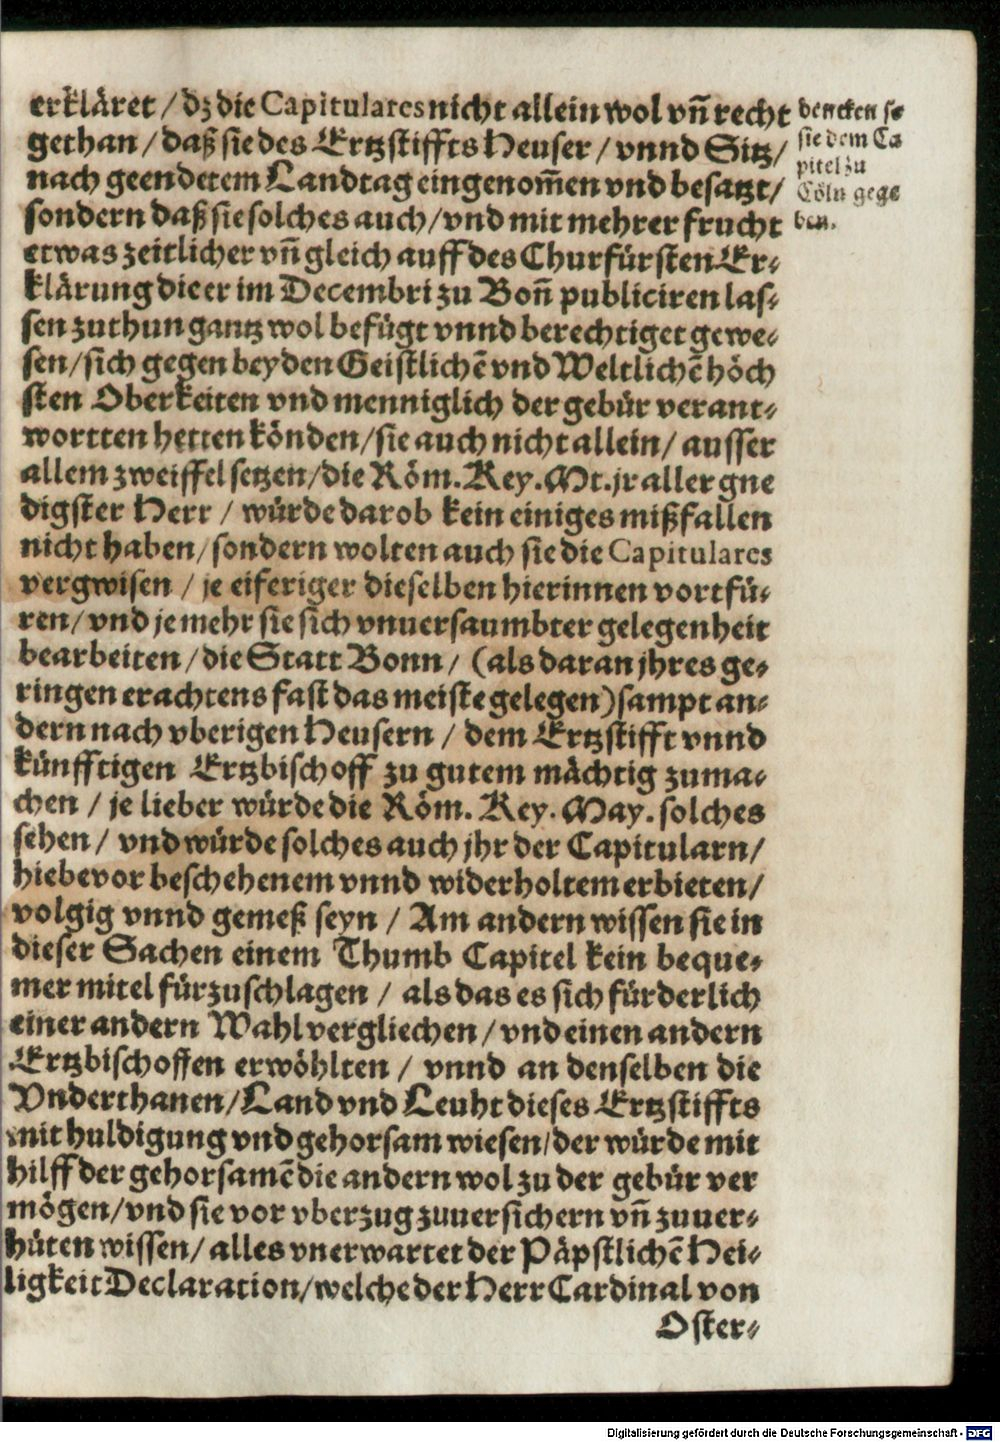 erkläret / dz die Capitulares nicht allein wol vñ recht
gethan / daß sie des Ertzstiffts Heuser / vnnd Sitz /
nach geendetem Landtag eingenom̃en vnd besatzt /
sondern daß sie solches auch / vnd mit mehrer frucht
etwas zeitlicher vñ gleich auff des Churfürsten Er⸗
klärung die er im Decembri zu Boñ publiciren las⸗
sen zuthun gantz wol befügt vnnd berechtiget gewe⸗
sen / sich gegen beyden Geistlichẽ vnd Weltlichẽ höch
sten Oberkeiten vnd menniglich der gebür verant⸗
wortten hetten könden / sie auch nicht allein / ausser
allem zweiffel setzen / die Röm. Key. Mt. jr aller gne
digster Herr / würde darob kein einiges mißfallen
nicht haben / sondern wolten auch sie die Capitulares
vergwisen / je eiferiger dieselben hierinnen vortfü⸗
ren / vnd je mehr sie sich vnuersaumbter gelegenheit
bearbeiten / die Statt Bonn / (als daran jhres ge⸗
ringen erachtens fast das meiste gelegen) sampt an⸗
dern nach vberigen Heusern / dem Ertzstifft vnnd
künfftigen Ertzbischoff zu gutem mächtig zuma⸗
chen / je lieber würde die Röm. Key. May. solches
sehen / vnd würde solches auch jhr der Capitularn /
hiebevor beschehenem vnnd widerholtem erbieten /
volgig vnnd gemeß seyn / Am andern wissen sie in
dieser Sachen einem Thumb Capitel kein beque⸗
mer mitel fürzuschlagen / als das es sich fürderlich
einer andern Wahl vergliechen / vnd einen andern
Ertzbischoffen erwöhlten / vnnd an denselben die
Vnderthanen / Land vnd Leuht dieses Ertzstiffts
mit huldigung vnd gehorsam wiesen / der würde mit
hilff der gehorsamẽ die andern wol zu der gebür ver
mögen / vnd sie vor vberzug zuuersichern vñ zuuer⸗
hüten wissen / alles vnerwartet der Päpstlichẽ Hei⸗
ligkeit Declaration / welche der Herr Cardinal von
Oster⸗
dencken so
sie dem Ca
pitel zu
Cöln gege
ben.
Digitalisierung gefördert durch die Deutsche Forschungsgemeinschaft - DFG